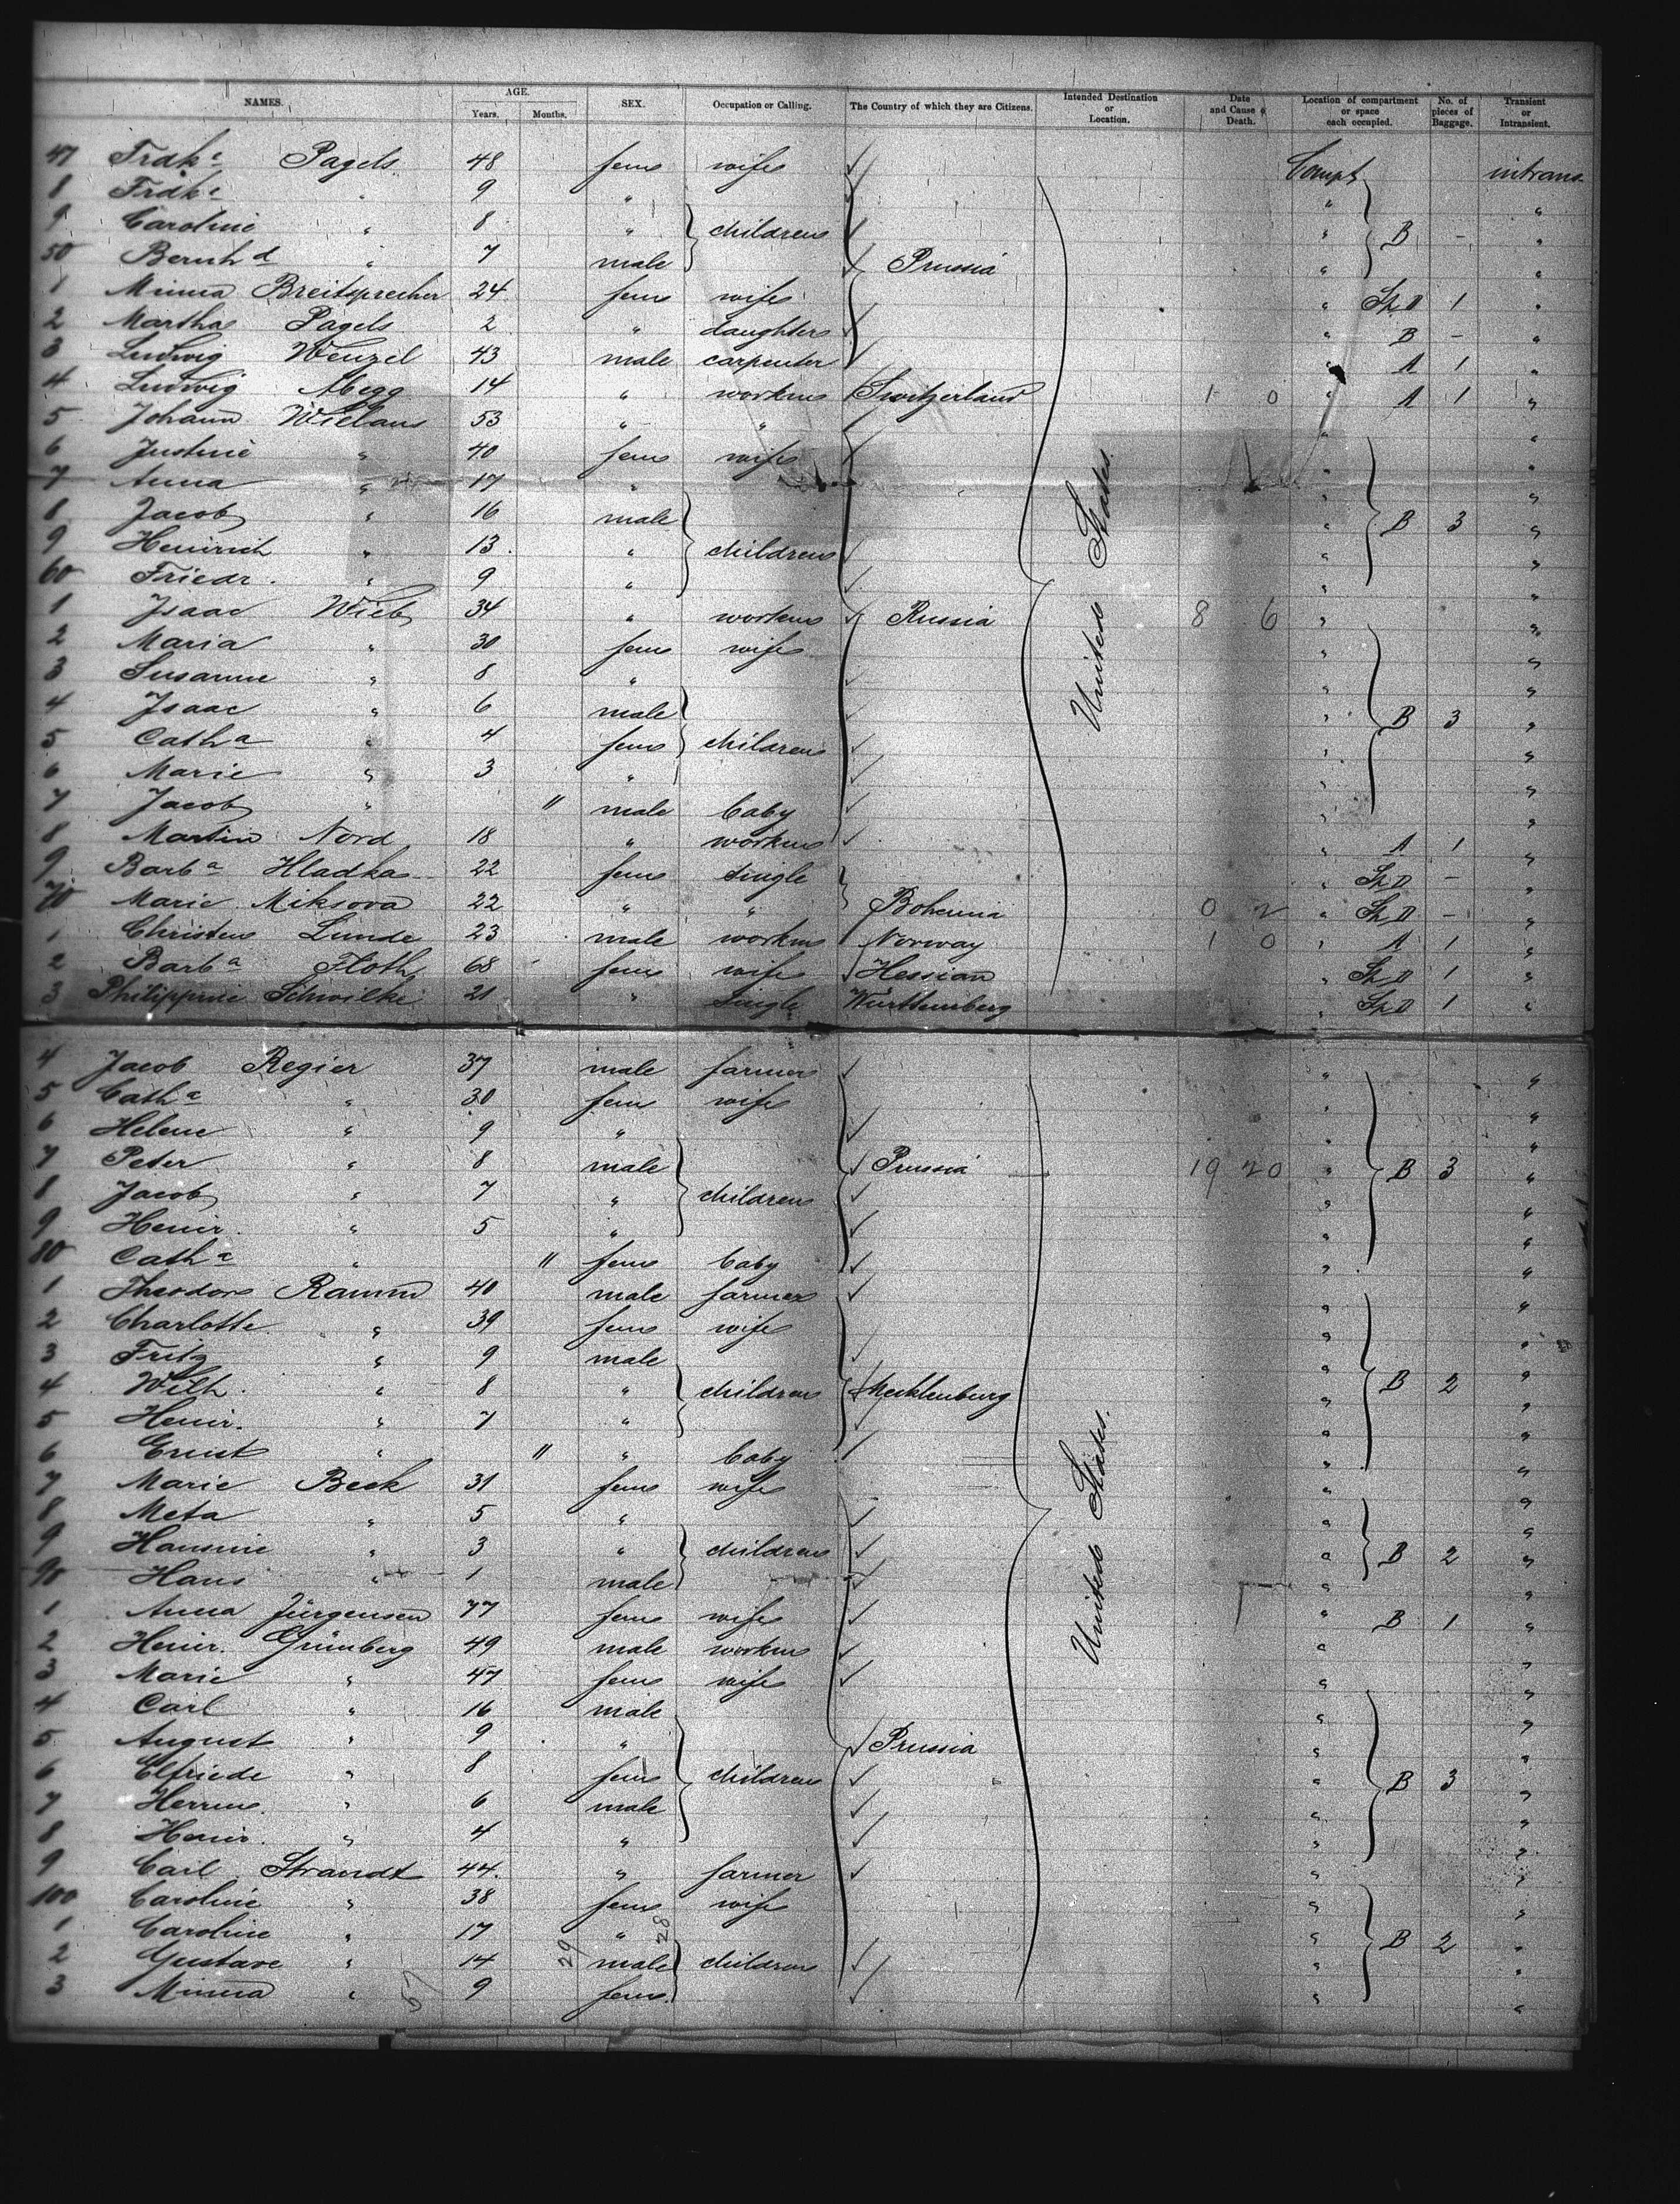 NAMES. AGE. Years. Months. SEX. Occupation or Calling. The Country of which they are Citizens. Intended Destination or Location. Date and Cause of Death. Location of compartment or space each occupied. No. of pieces of Baggage. Transient or Intransient.
47 Frdke Pagels 48 fem wife Compt intrans
8 Frdke " 9 " " "
9 Caroline " 8 " children " B - "
50 Bernhd " 7 male Prussia " "
1 Minna Breitsprecher 24 fem wife " Sp D 1 "
2 Martha Pagels 2 " daughter " B - "
3 Ludwig Wenzel 43 male carpenter " A 1 "
4 Ludwig Abegg 14 " workm Switzerland 1 0 " A 1 "
5 Johann Wielans 53 " " " "
6 Justine " 40 fem wife " "
7 Anna " 17 " " "
8 Jacob " 16 male " B 3 "
9 Heinrich " 13 " children " "
60 Friedr. " 9 " " "
1 Isaac Wieb 34 " workm Russia 8 6 " "
2 Maria " 30 fem wife " "
3 Susanne " 8 " " "
4 Isaac " 6 male " B 3 "
5 Catha " 4 fem children " "
6 Marie " 3 " " "
7 Jacob " 11 male baby " "
8 Martin Nord 18 " workm " A 1 "
9 Barba Hladka 22 fem single " Sp D - "
70 Marie Miksova 22 " " Bohemia 0 2 " Sp D - "
1 Christen Lunde 23 male workm Norway 1 0 " A 1 "
2 Barba Floth 68 fem wife Hessian " Sp D 1 "
3 Philippine Schwilke 21 " single Württemberg " Sp D 1 "
United States.
4 Jacob Regier 37 male farmer " "
5 Catha " 30 fem wife " "
6 Helene " 9 " " "
7 Peter " 8 male Prussia 19 20 " B 3 "
8 Jacob " 7 " children " "
9 Heinr. " 5 " " "
80 Catha " 11 fem baby " "
1 Theodor Ramm 40 male farmer " "
2 Charlotte " 39 fem wife " "
3 Fritz " 9 male " "
4 Wilh. " 8 " children Mecklenburg " B 2 "
5 Heinr. " 7 " " "
6 Ernst " 11 " baby " "
7 Marie Beck 31 fem wife " "
8 Meta " 5 " " "
9 Hansine " 3 " children " B 2 "
90 Hans " 1 male " "
1 Anna Jürgensen 77 fem wife " B 1 "
2 Heinr. Grünberg 49 male workm " "
3 Marie " 47 fem wife " "
4 Carl " 16 male " "
5 August " 9 " Prussia " "
6 Elfriede " 8 fem children " B 3 "
7 Herrm. " 6 male " "
8 Heinr. " 4 " " "
9 Carl Strandt 44 " farmer " "
100 Caroline " 38 fem wife " "
1 Caroline " 17 " " B 2 "
2 Gustave " 14 male children " "
3 Minna " 9 fem. " "
United States.
57 29 28